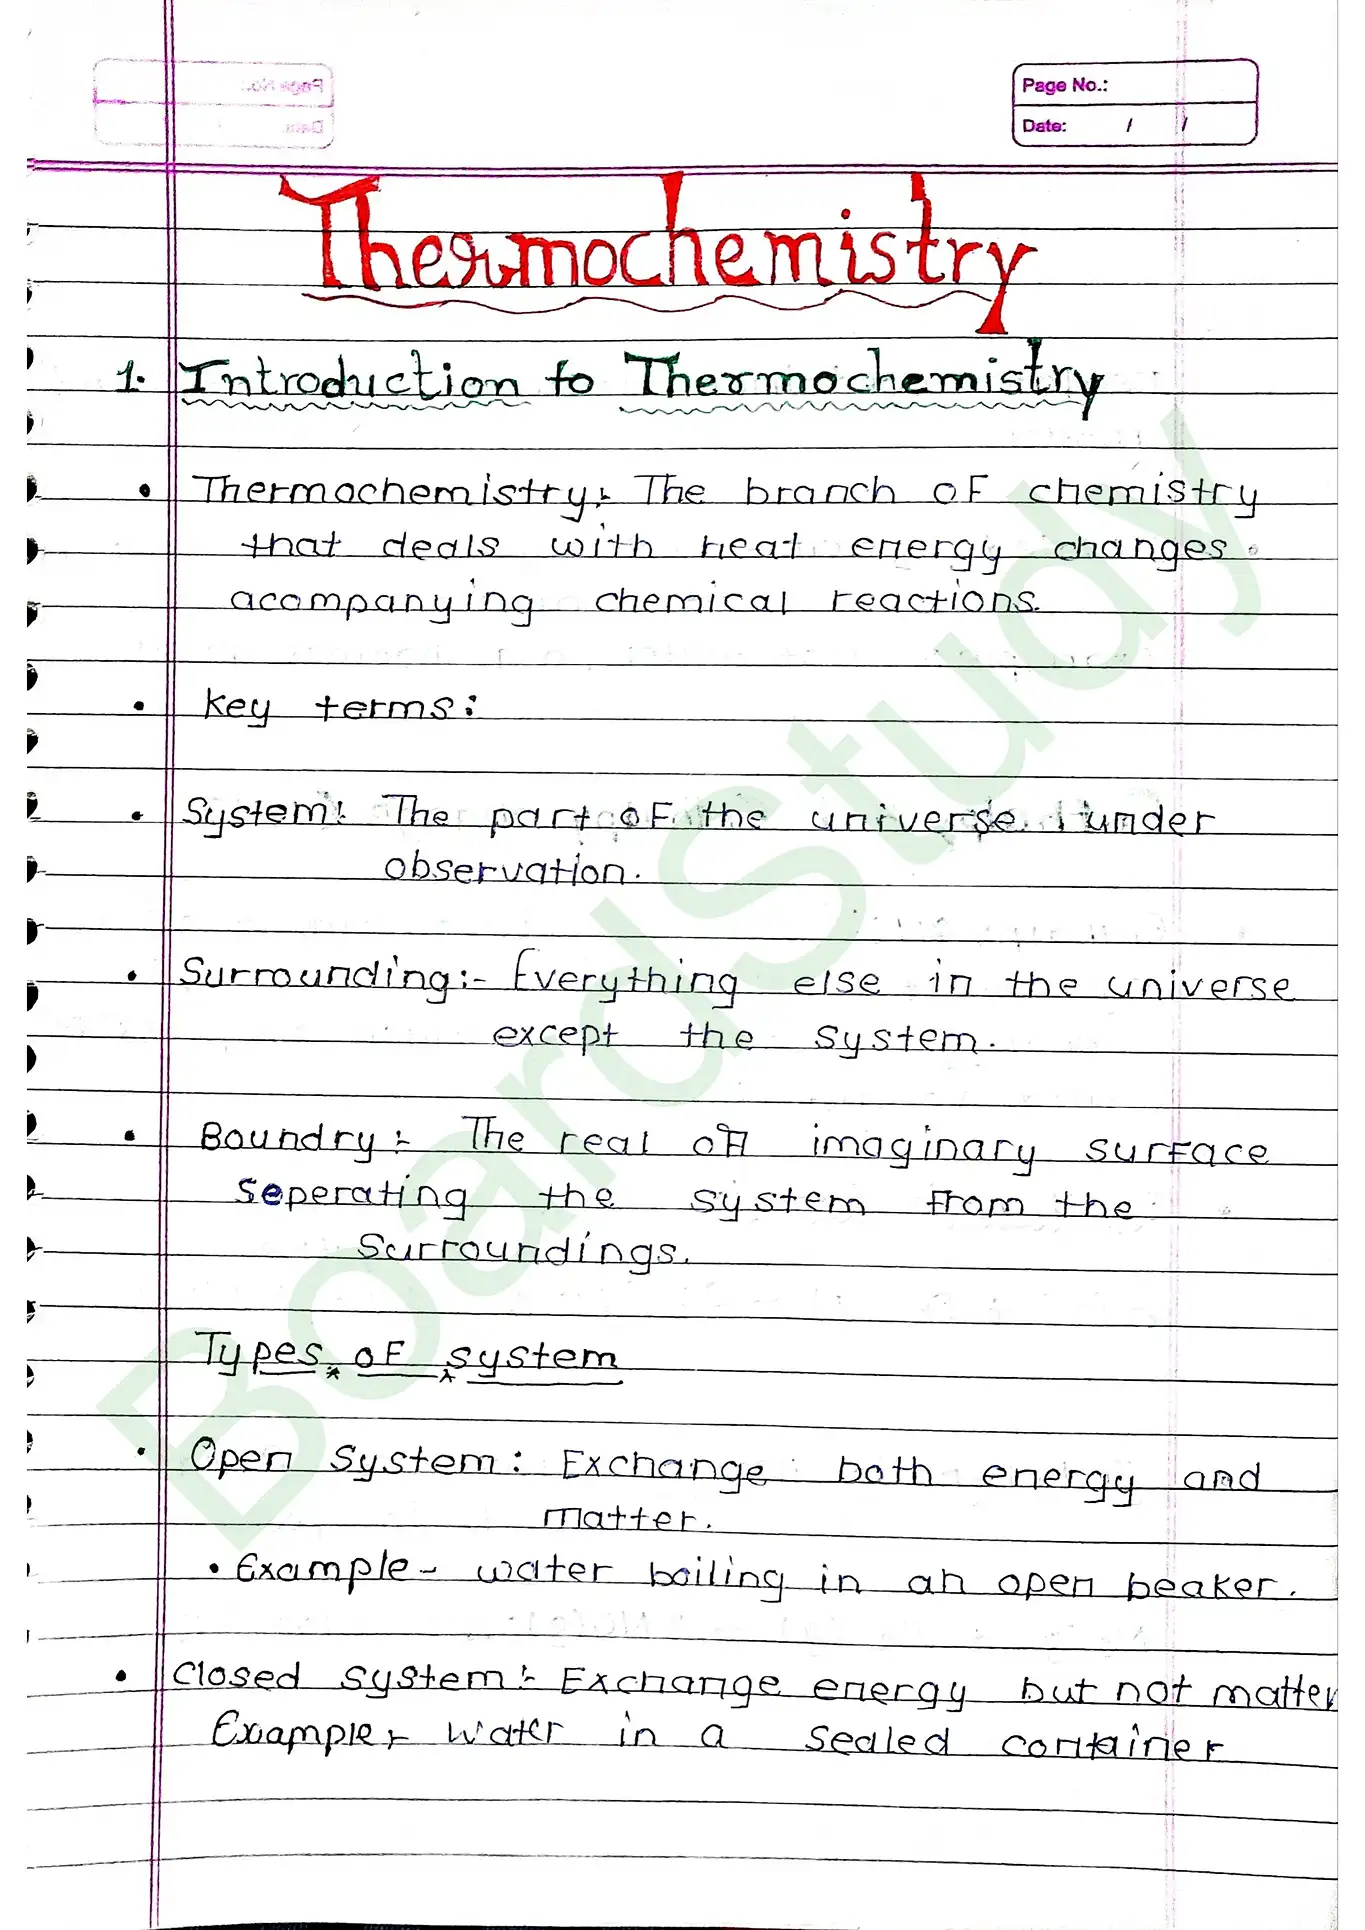 Page No.:
Date: / /
Thermochemistry
1. Introduction to Thermochemistry
• Thermochemistry:- The branch of chemistry
that deals with heat energy changes
acompanying chemical reactions.
• Key terms:
• System:- The part of the universe under
observation.
• Surrounding:- Everything else in the universe
except the system.
• Boundry:- The real or imaginary surface
seperating the system from the
surroundings.
Types of system
• Open System: Exchange both energy and
matter.
• Example- water boiling in an open beaker.
• Closed system:- Exchange energy but not matter
Example:- water in a sealed container
BoardStudy